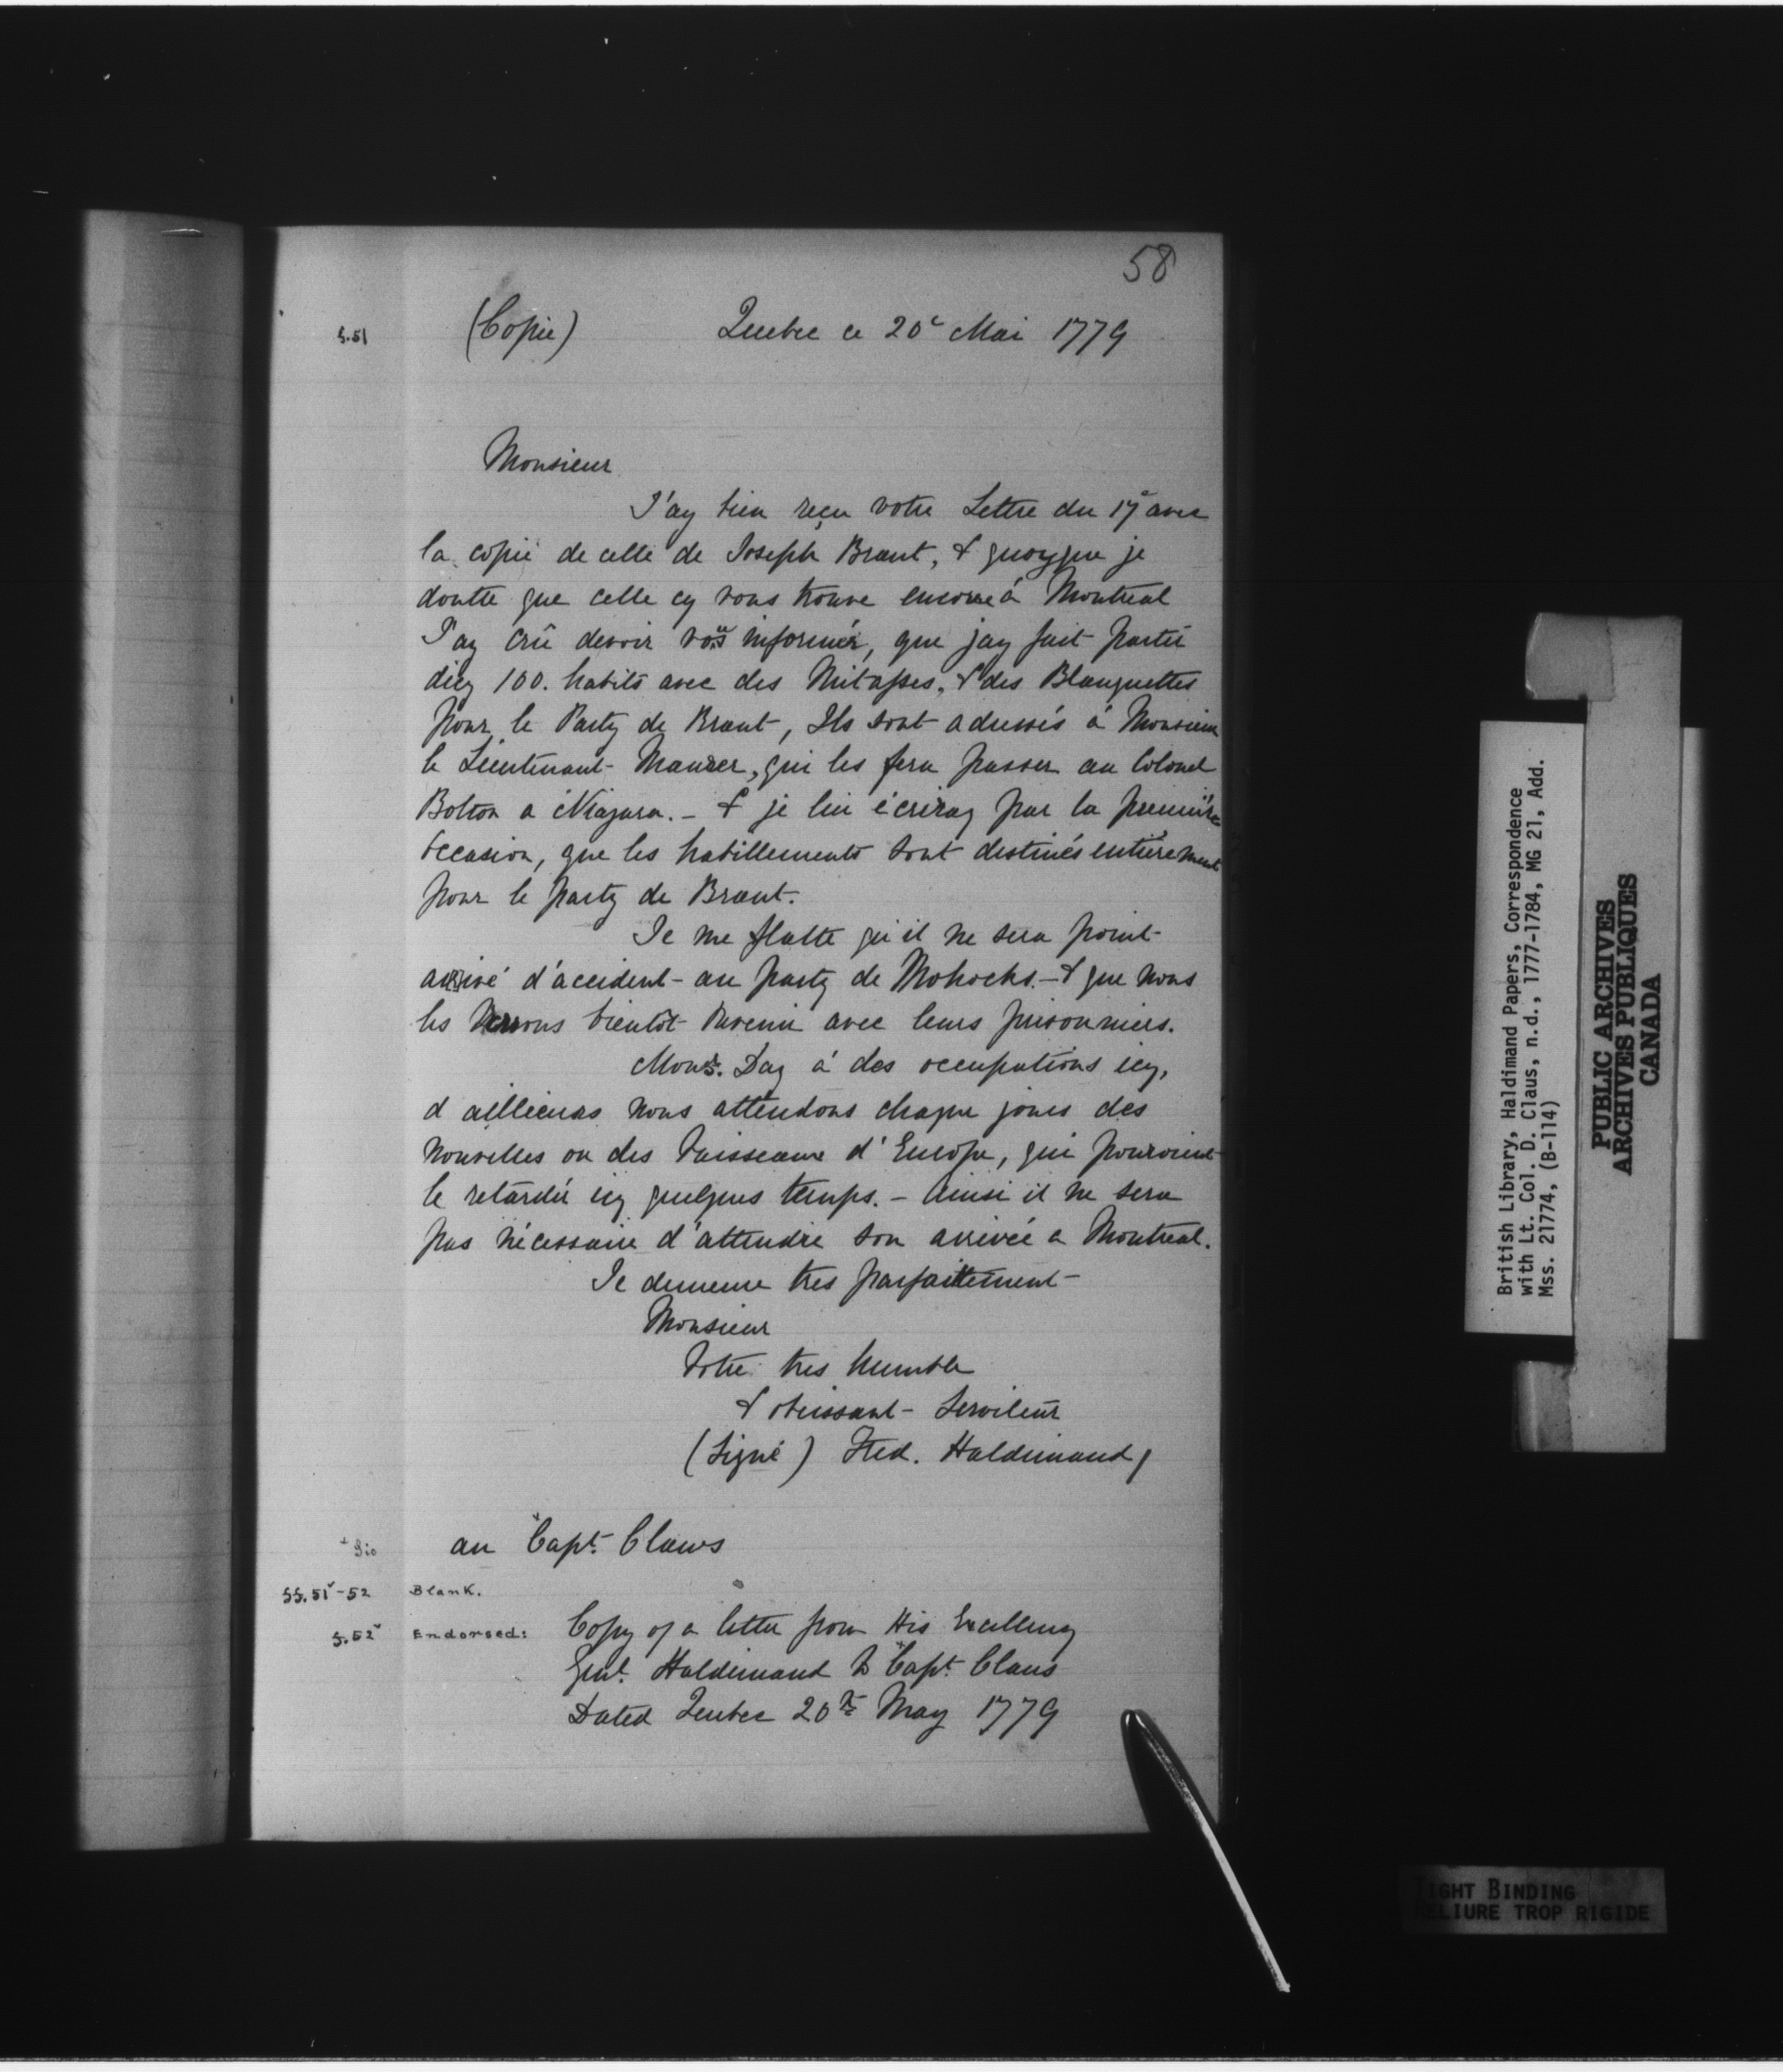 58
f.51 (Copie) Quebec ce 20e Mai 1779
Monsieur
J'ay bien reçu votre Lettre du 17e avec
la copie de celle de Joseph Brant, & quoyque je
doutte que celle cy vous trouve encorre á Montreal
J'ay crû devoir vous informér, que jay fait partir
dicy 100. habits avec des Mitasses, & des Blanquettes
pour le Party de Brant, Ils sont adressés á Monsieur
le Lieutenant Maurer, qui les fera passer au Colonel
Bolton a Niagara. - & je lui écriray par la premiére
occasion, que les habillements sont destinés entierement
pour le party de Brant.
Je me flatte qu'il ne sera point
arrivé d'accident au party de Mohocks. - & que nous
les verrons bientôt revenir avec leurs prisonniers.
Monsr. Day á des occupations icy,
d ailleurs nous attendons chaque jours des
nouvelles ou des Vaisseaux d'Europe, qui pouroient
le retardér icy quelques temps. - Ainsi il ne sera
pas nécessaire d'attendre son arrivée a Montreal.
Je demeure tres parfaittement
Monsieur
Votre tres humble
& obeissant Serviteur
(Signé) Fred. Haldimand
+ Sic au +Capt. Claws
ff.51v-52 Blank.
f.52v Endorsed: Copy of a letter from His Excellency
Genl. Haldimand to +Capt. Claus
Dated Quebec 20th May 1779
British Library, Haldimand Papers, Correspondence
with Lt. Col. D. Claus, n.d., 1777-1784, MG 21, Add.
Mss. 21774, (B-114)
PUBLIC ARCHIVES
ARCHIVES PUBLIQUES
CANADA
TIGHT BINDING
RELIURE TROP RIGIDE